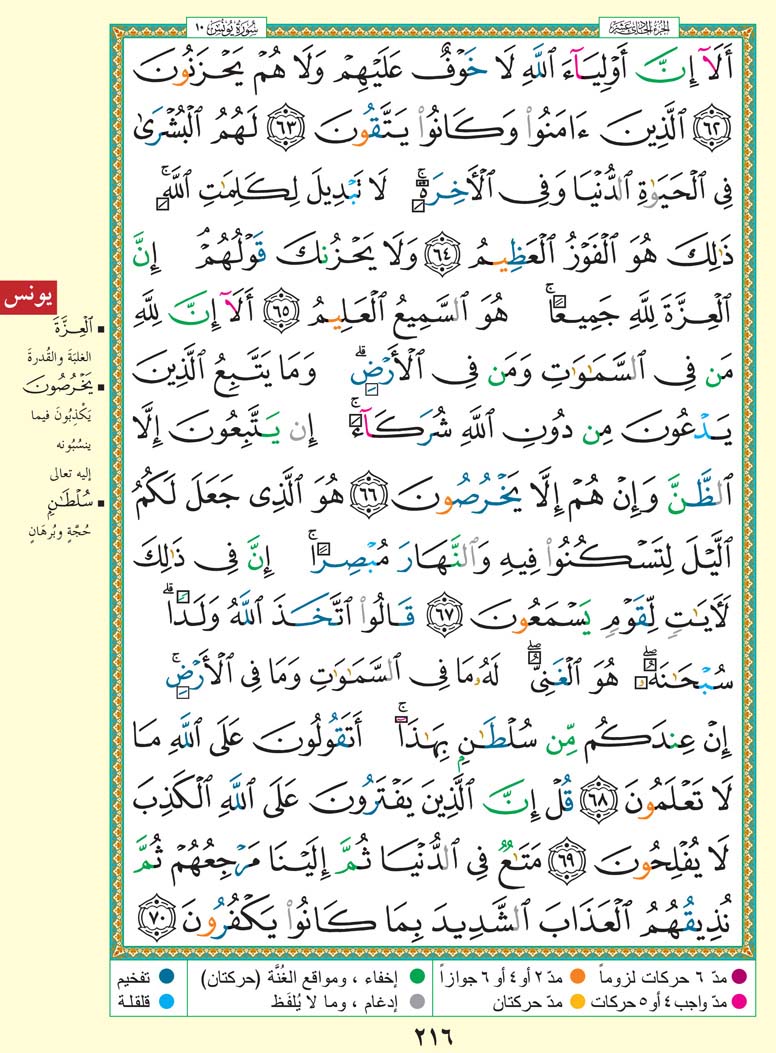 الجزء الحادي عشر
سورة يونس ١٠
أَلَآ إِنَّ أَوْلِيَآءَ ٱللَّهِ لَا خَوْفٌ عَلَيْهِمْ وَلَا هُمْ يَحْزَنُونَ
٦٢ ٱلَّذِينَ ءَامَنُوا۟ وَكَانُوا۟ يَتَّقُونَ ٦٣ لَهُمُ ٱلْبُشْرَىٰ
فِى ٱلْحَيَوٰةِ ٱلدُّنْيَا وَفِى ٱلْأَخِرَةِ ۚ لَا تَبْدِيلَ لِكَلِمَٰتِ ٱللَّهِ ۚ
ذَٰلِكَ هُوَ ٱلْفَوْزُ ٱلْعَظِيمُ ٦٤ وَلَا يَحْزُنكَ قَوْلُهُمْ ۘ إِنَّ
ٱلْعِزَّةَ لِلَّهِ جَمِيعًا ۚ هُوَ ٱلسَّمِيعُ ٱلْعَلِيمُ ٦٥ أَلَآ إِنَّ لِلَّهِ
مَن فِى ٱلسَّمَٰوَٰتِ وَمَن فِى ٱلْأَرْضِ ۗ وَمَا يَتَّبِعُ ٱلَّذِينَ
يَدْعُونَ مِن دُونِ ٱللَّهِ شُرَكَآءَ ۚ إِن يَتَّبِعُونَ إِلَّا
ٱلظَّنَّ وَإِنْ هُمْ إِلَّا يَخْرُصُونَ ٦٦ هُوَ ٱلَّذِى جَعَلَ لَكُمُ
ٱلَّيْلَ لِتَسْكُنُوا۟ فِيهِ وَٱلنَّهَارَ مُبْصِرًا ۚ إِنَّ فِى ذَٰلِكَ
لَأَيَٰتٍ لِّقَوْمٍ يَسْمَعُونَ ٦٧ قَالُوا۟ ٱتَّخَذَ ٱللَّهُ وَلَدًا ۗ
سُبْحَٰنَهُۥ ۖ هُوَ ٱلْغَنِىُّ ۖ لَهُۥ مَا فِى ٱلسَّمَٰوَٰتِ وَمَا فِى ٱلْأَرْضِ ۚ
إِنْ عِندَكُم مِّن سُلْطَٰنٍۭ بِهَٰذَآ ۚ أَتَقُولُونَ عَلَى ٱللَّهِ مَا
لَا تَعْلَمُونَ ٦٨ قُلْ إِنَّ ٱلَّذِينَ يَفْتَرُونَ عَلَى ٱللَّهِ ٱلْكَذِبَ
لَا يُفْلِحُونَ ٦٩ مَتَٰعٌ فِى ٱلدُّنْيَا ثُمَّ إِلَيْنَا مَرْجِعُهُمْ ثُمَّ
نُذِيقُهُمُ ٱلْعَذَابَ ٱلشَّدِيدَ بِمَا كَانُوا۟ يَكْفُرُونَ ٧٠
يونس
ٱلْعِزَّةَ
الغلبَةَ والقُدرةَ
يَخْرُصُونَ
يَكْذِبُونَ فيما
ينسُبُونه
إليه تعالى
سُلْطَٰنٍ
حُجَّةٍ وبُرهَانٍ
مدّ ٦ حركات لزوماً مدّ ٢ أو ٤ أو ٦ جوازاً إخفاء، ومواقع الغُنَّة (حركتان) تفخيم
مدّ واجب ٤ أو ٥ حركات مدّ حركتان إدغام، وما لا يُلفَظ قلقلة
٢١٦